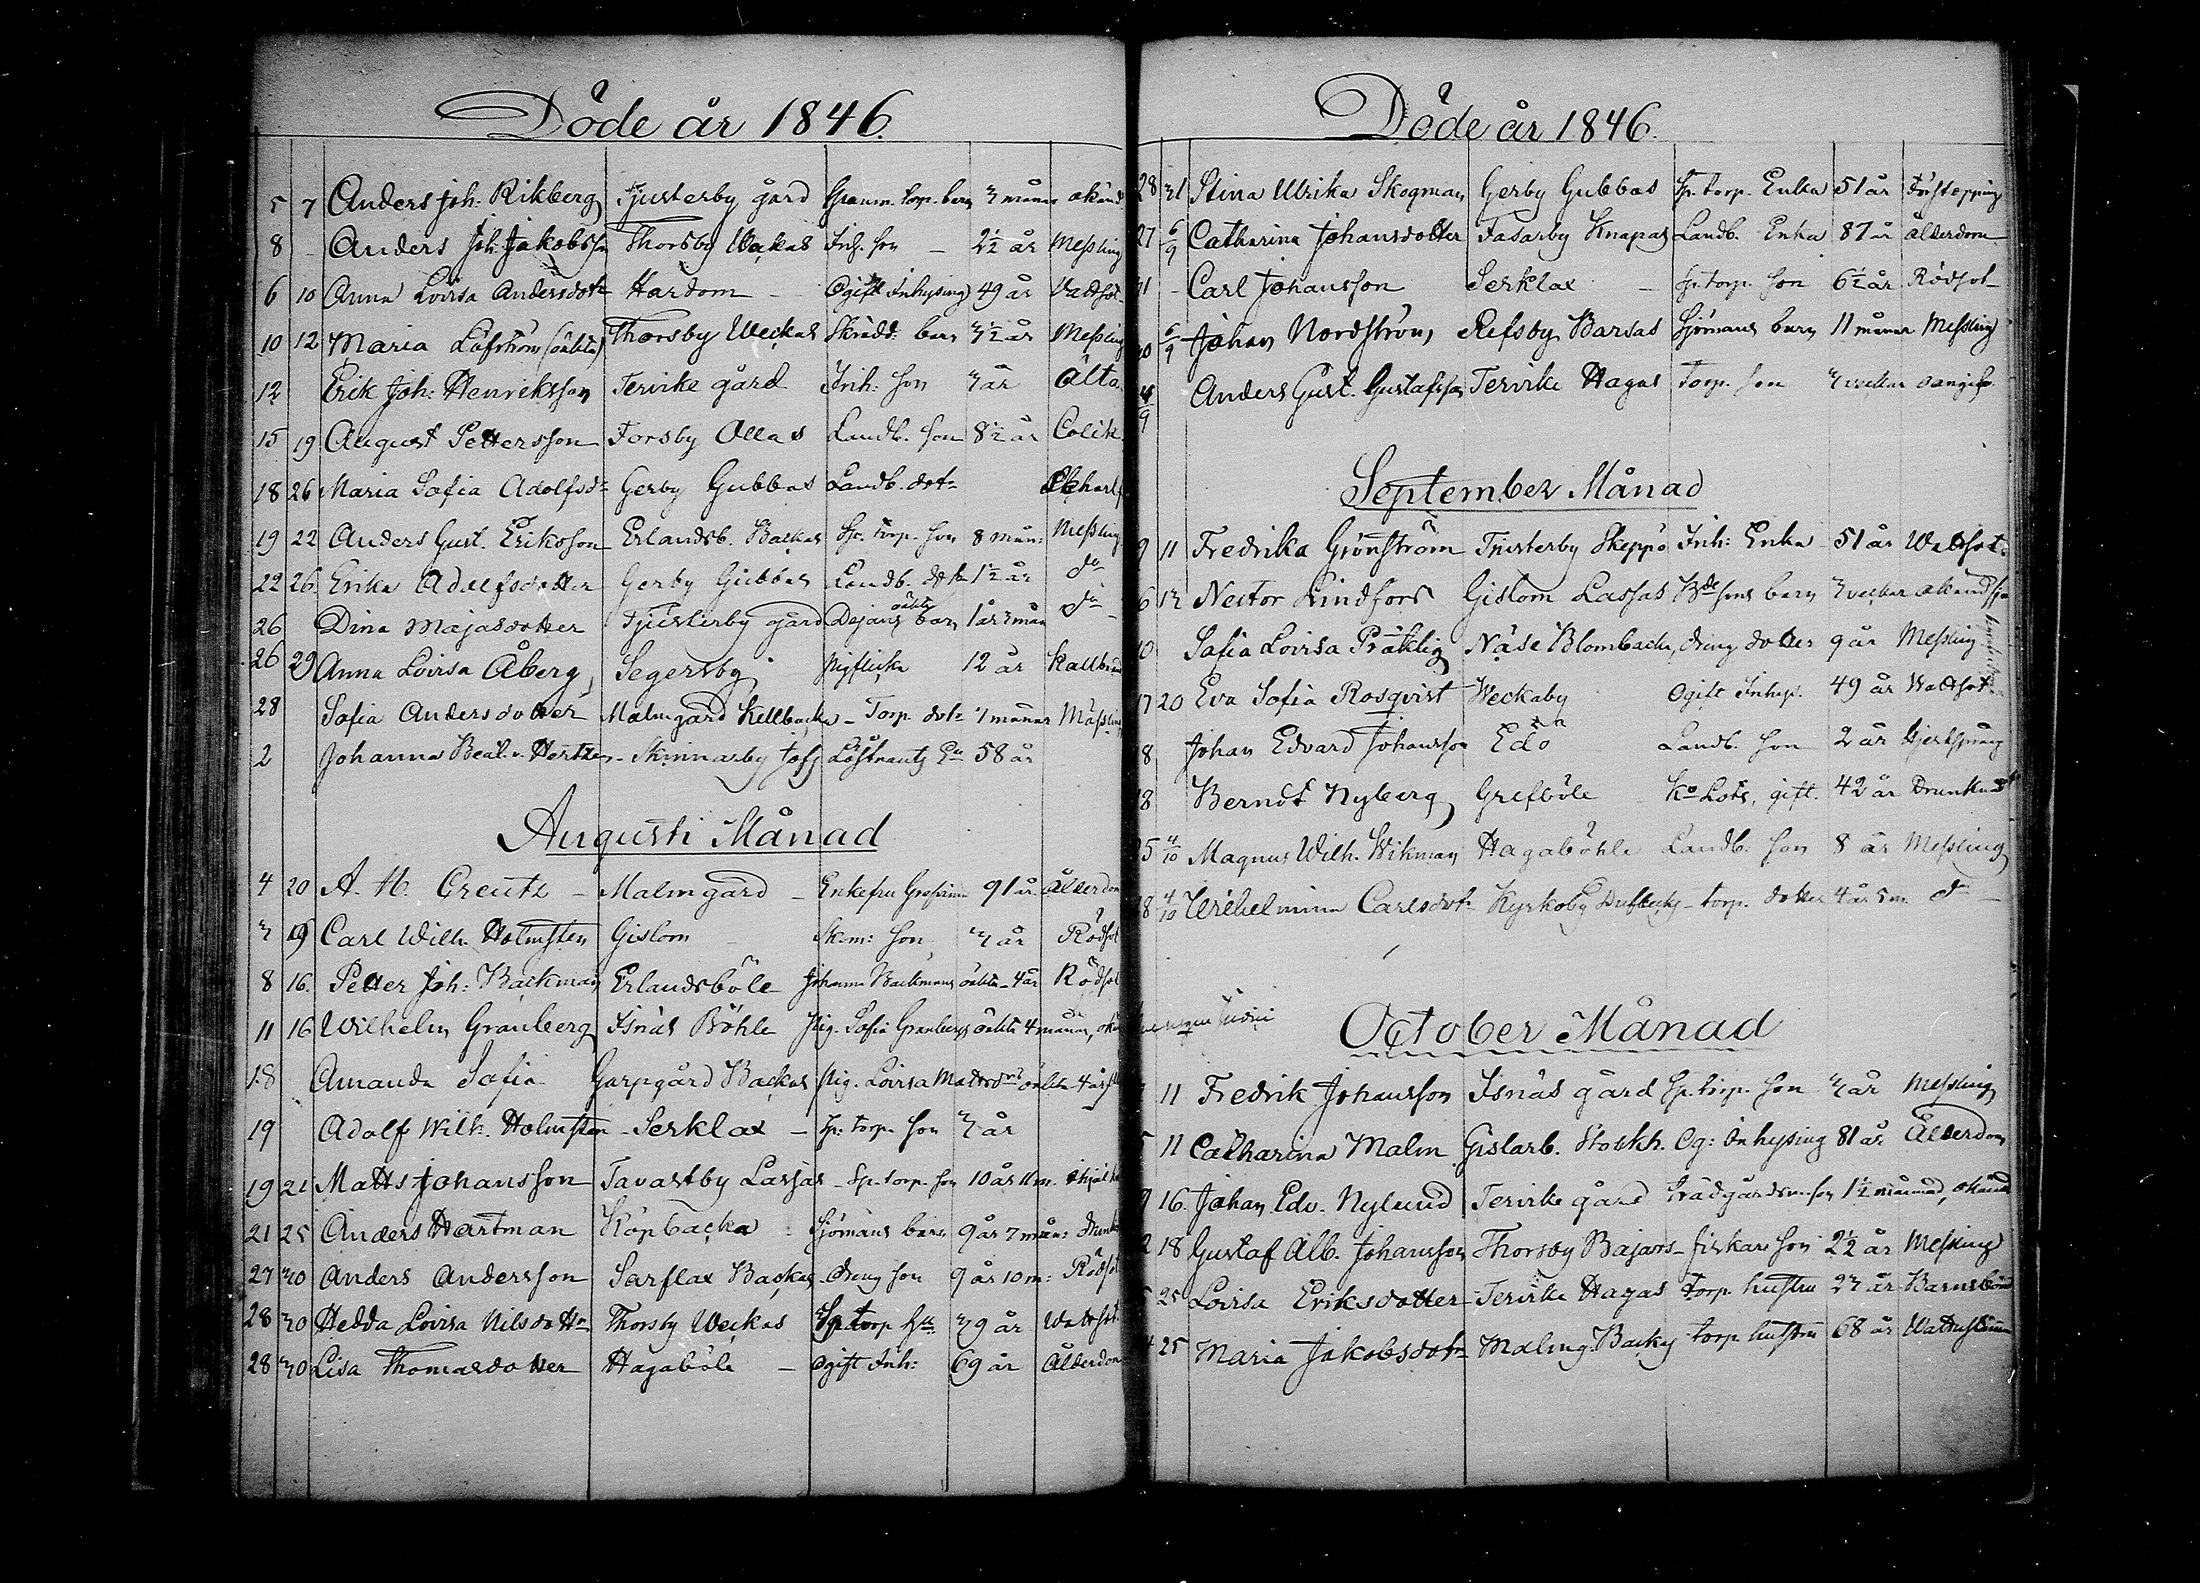 Döde år 1846.
5 7 Anders Joh. Rikberg Tjusterby gård Granm. torp. barn 3 månar okänd
8 - Anders Joh. Jakobsson Thorsby Weckas Inh. son - 2½ år Messling
6 10 Anna Lovisa Andersdotr Härdom - Ogift Inhysing 49 år Vattsot
10 12 Maria Löfström (oäkta) Thorsby Weckas Skrädd. barn 3½ år Messling
12 Erik Joh. Henriksson Tervike gård Inh. son 3 år Älta
15 19 August Pettersson Forsby Ollas Landb. son 8½ år Colik
18 26 Maria Sofia Adolfsdr Gerby Gubbas Landb. dotr
19 22 Anders Gust. Eriksson Erlandsb. Backas Sp. torp. son 8 mån: Messling
22 26. Erika Adolfsdotter Gerby Gubbas Landb. dotr 1½ år do
26 Dina Majasdotter Tjusterby gård Dejans oäkta barn 1 år 3 mån do -
26 29 Anna Lovisa Åberg, Segersby pigflicka 12 år Kallbrand
28 Sofia Andersdotter Malmgård Kellbacka - Torp. dotr 3 månar Mässling
2 Johanna Beat. v. Hertzen - Skinnarby Löjtnants En 58 år
Augusti Månad
4 20 A. M. Creutz - Malmgård - Enkefru Grefvinna 91 år Ålderdom
3 19 Carl Wilh. Holmsten Gislom - Skom: son 3 år Rödsot
8 16. Petter Joh: Backman Erlandsböle Johanna Backmans oäkta - 4 år Rödsot
11 16 Wilhelm Granberg Isnäs Böhle Pig. Sofia Granbergs oäkta 4 månar,
18 Amanda Sofia Garpgård Backas Pig. Lovisa Mattsdrs oäkta 4 år
19 Adolf Wilh. Holmsten - Serklax - Sp. torp. son 3 år
19 21 Matts Johansson Tavastby Lassas - Sp. torp. son 10 år 11 m.
21 25 Anders Hartman Köpbacka - Sjömans barn 9 år 7 mån: Drunknad
27 30 Anders Andersson Sarflax Backas - Dreng son 9 år 10 m: Rödsot
28 30 Hedda Lovisa Nilsdotr Thorsby Weckas Sp torp hu 39 år Wattsot
28 30 Lisa Thomasdotter Hagaböle - ogift Inh: 69 år Ålderdom
Döde år 1846.
28 31 Stina Ulrika Skogman Gerby Gubbas Sp. torp. Enka 51 år Förstoppning
27 6/9 Catharina Johansdotter Fasarby Knapas Landb. Enka 87 år ålderdom
31 - Carl Johansson Serklax - Sp. torp. son 6½ år Rödsot
30 6/9 Johan Nordström, Refsby Barsas Sjömans barn 11 månar Messling
4/9 Anders Gust. Gustafsson Tervike Hagas Torp. son 3 veckor
September Månad
9 11 Fredrika Grönström Tjusterby Skeppö Inh: Enka 51 år Wattsot.
6 13 Nestor Lindfors Gislom Lassas Bde sons barn 3 veckor
10 Sofia Lovisa Präktig Näse Blombacka, dreng dotter 9 år Messling
17 20 Eva Sofia Rosqvist Weckaby Ogift Inhys. 49 år Wattsot
8 Johan Edvard Johansson Edö Landb. son 2 år Hjertsprång
18 Berndt Nyberg Grefböle Ko Lots, gift. 42 år Drunknad
25 4/10 Magnus Wilh. Wikman Hagaböhle Landb: son 8 år Messling
28 4/10 Wilhelmina Carlsdotr Kyrkoby - torp. dotter 4 år 5 m. do -
October Månad
11 Fredrik Johansson Isnäs gård Sp. torp. son 3 år Messling
5 11 Catharina Malm Gislarb. Stockh. Og: Inhysing 81 år Ålderdom
9 16. Johan Edv. Nylund Tervike gård Trädgårdsm. son 1½ månad, okänd
12 18 Gustaf Alb. Johansson Thorsby Bajars - fiskars son 2½ år Messling
25 Lovisa Eriksdotter - Tervike Hagas torp. hustru 23 år Barnsbörd
25 Maria Jakobsdotr Malmg. Backy torp. hustru 68 år